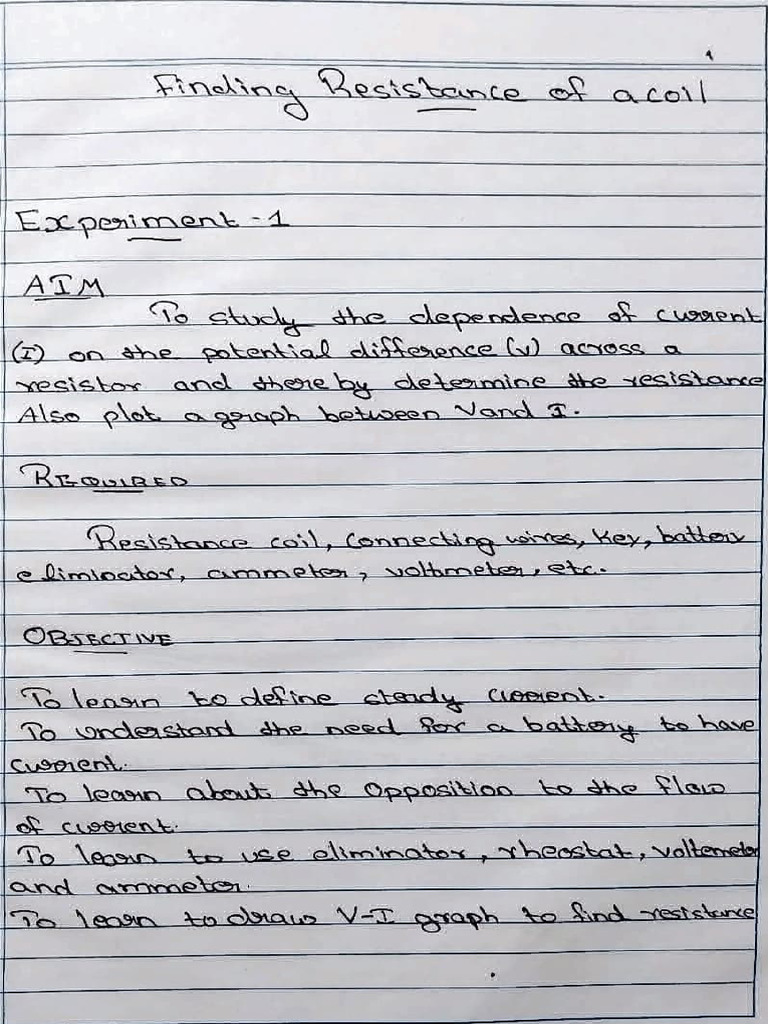 Finding Resistance of a coil
Experiment - 1
AIM
To study the dependence of current
(I) on the potential difference (v) across a
resistor and thereby determine the resistance
Also plot a graph between V and I.
REQUIRED
Resistance coil, Connecting wires, Key, battery
eliminator, ammeter, voltmeter, etc.
OBJECTIVE
To learn to define steady current.
To understand the need for a battery to have
current.
To learn about the opposition to the flow
of current.
To learn to use eliminator, rheostat, voltemeter
and ammeter.
To learn to draw V-I graph to find resistance